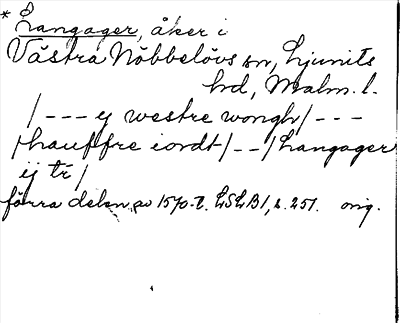 * Langager, åker i
Västra Nöbbelövs sn, Ljunits
hd, Malm. l.
/--- ij westre wongh/---
/hauffre iordt/--/Langager
ij tr/
förra delen av 1570-t. LSLB1, s. 251. orig.